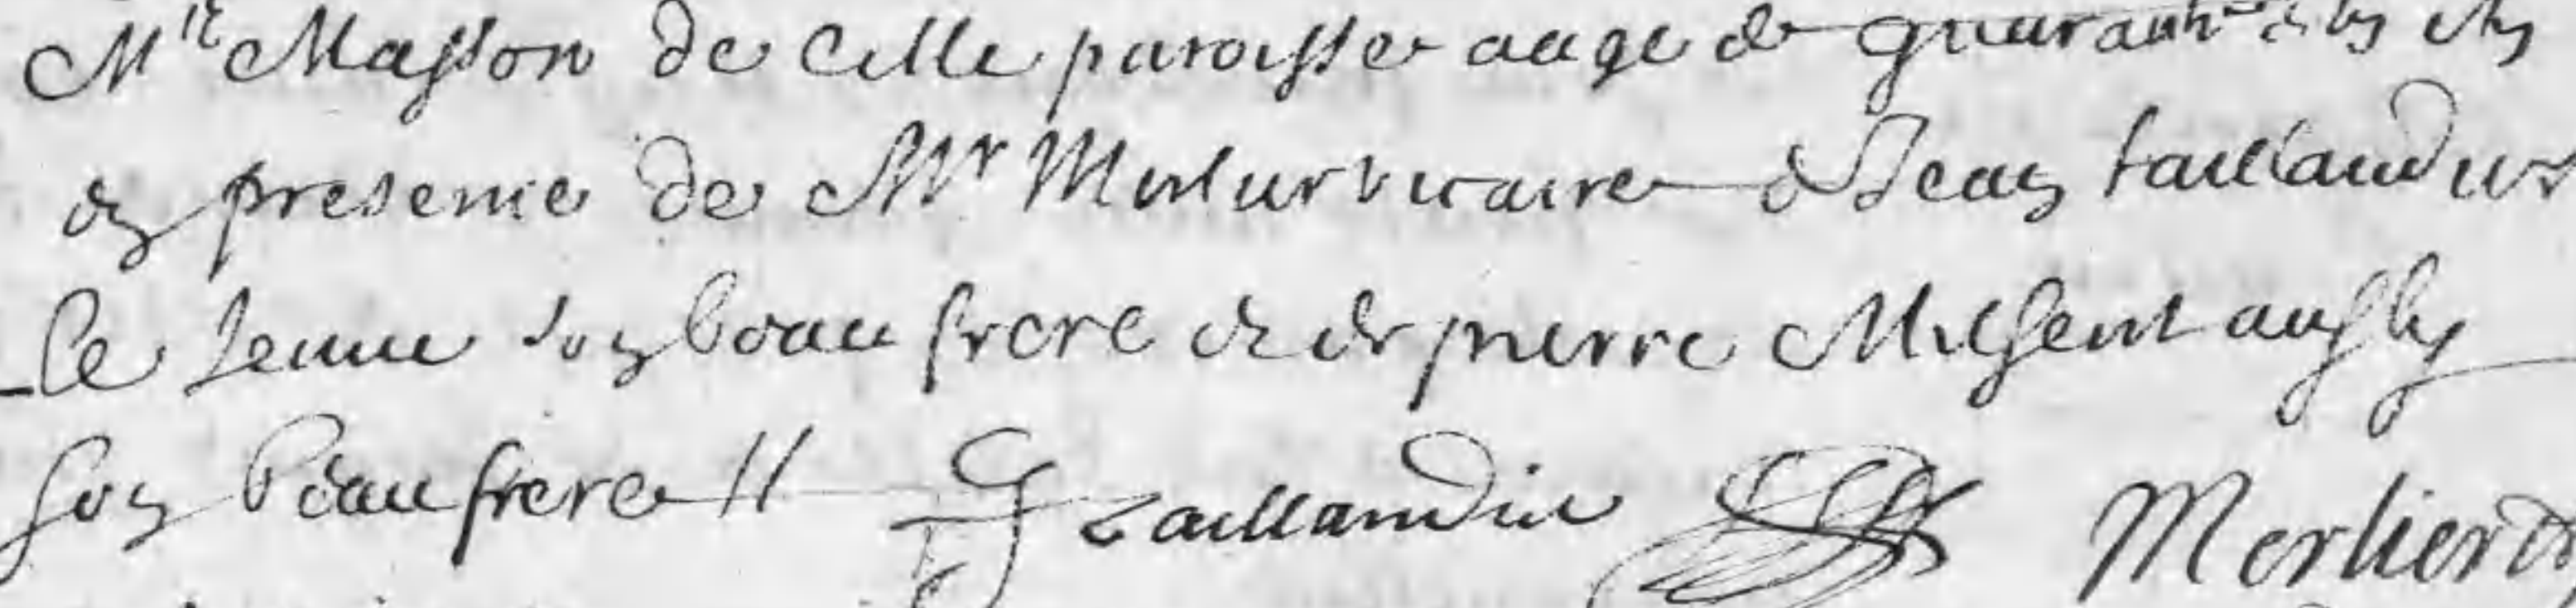 Mre Masson de celle paroisse aage de quarante six ans
en presence de Mr Merlier vicaire & Jean taillandier
le Jeune son beau frere & de pierre Milsent aussy
son beau frere // J taillandier Merlier